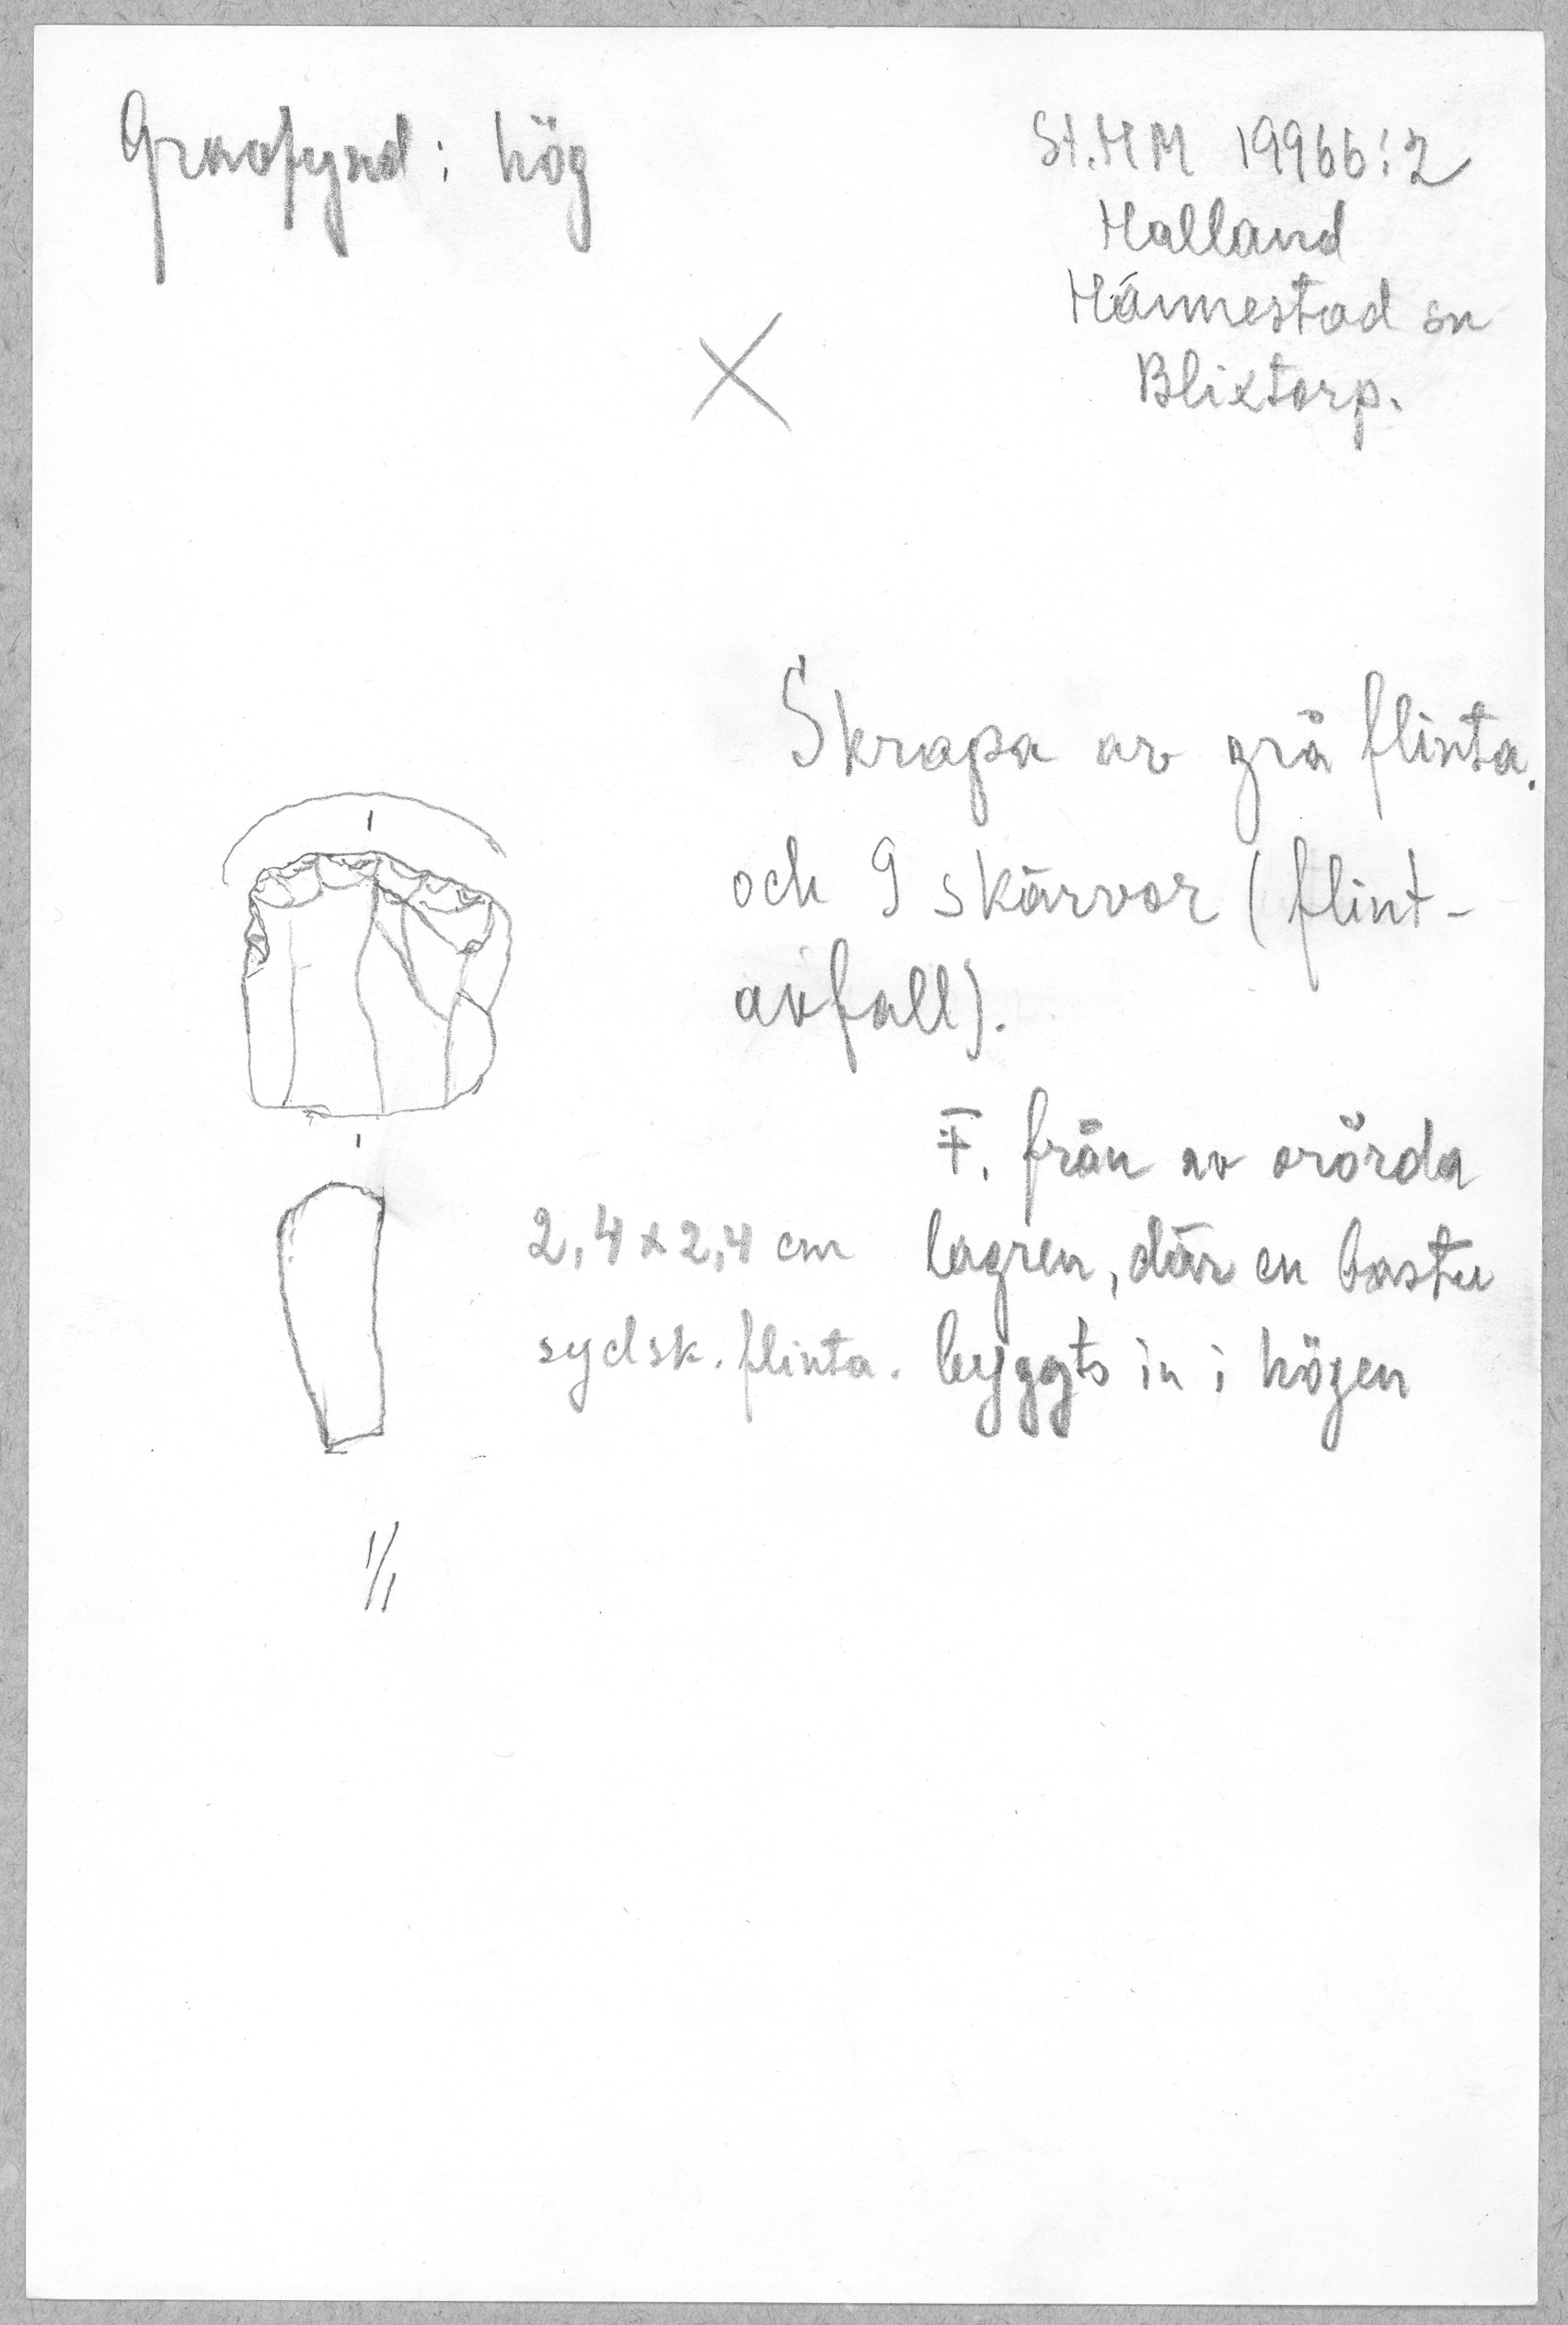 Gravfynd: hög
St.HM 19966:2
Halland
Hännestad sn
Blixtorp.
Skrapa av grå flinta.
och 9 skärvor (flint-
avfall).
F. från av orörda
lagren, där en bastu
byggts in i högen
2,4 x 2,4 cm
sydsk. flinta.
1/1